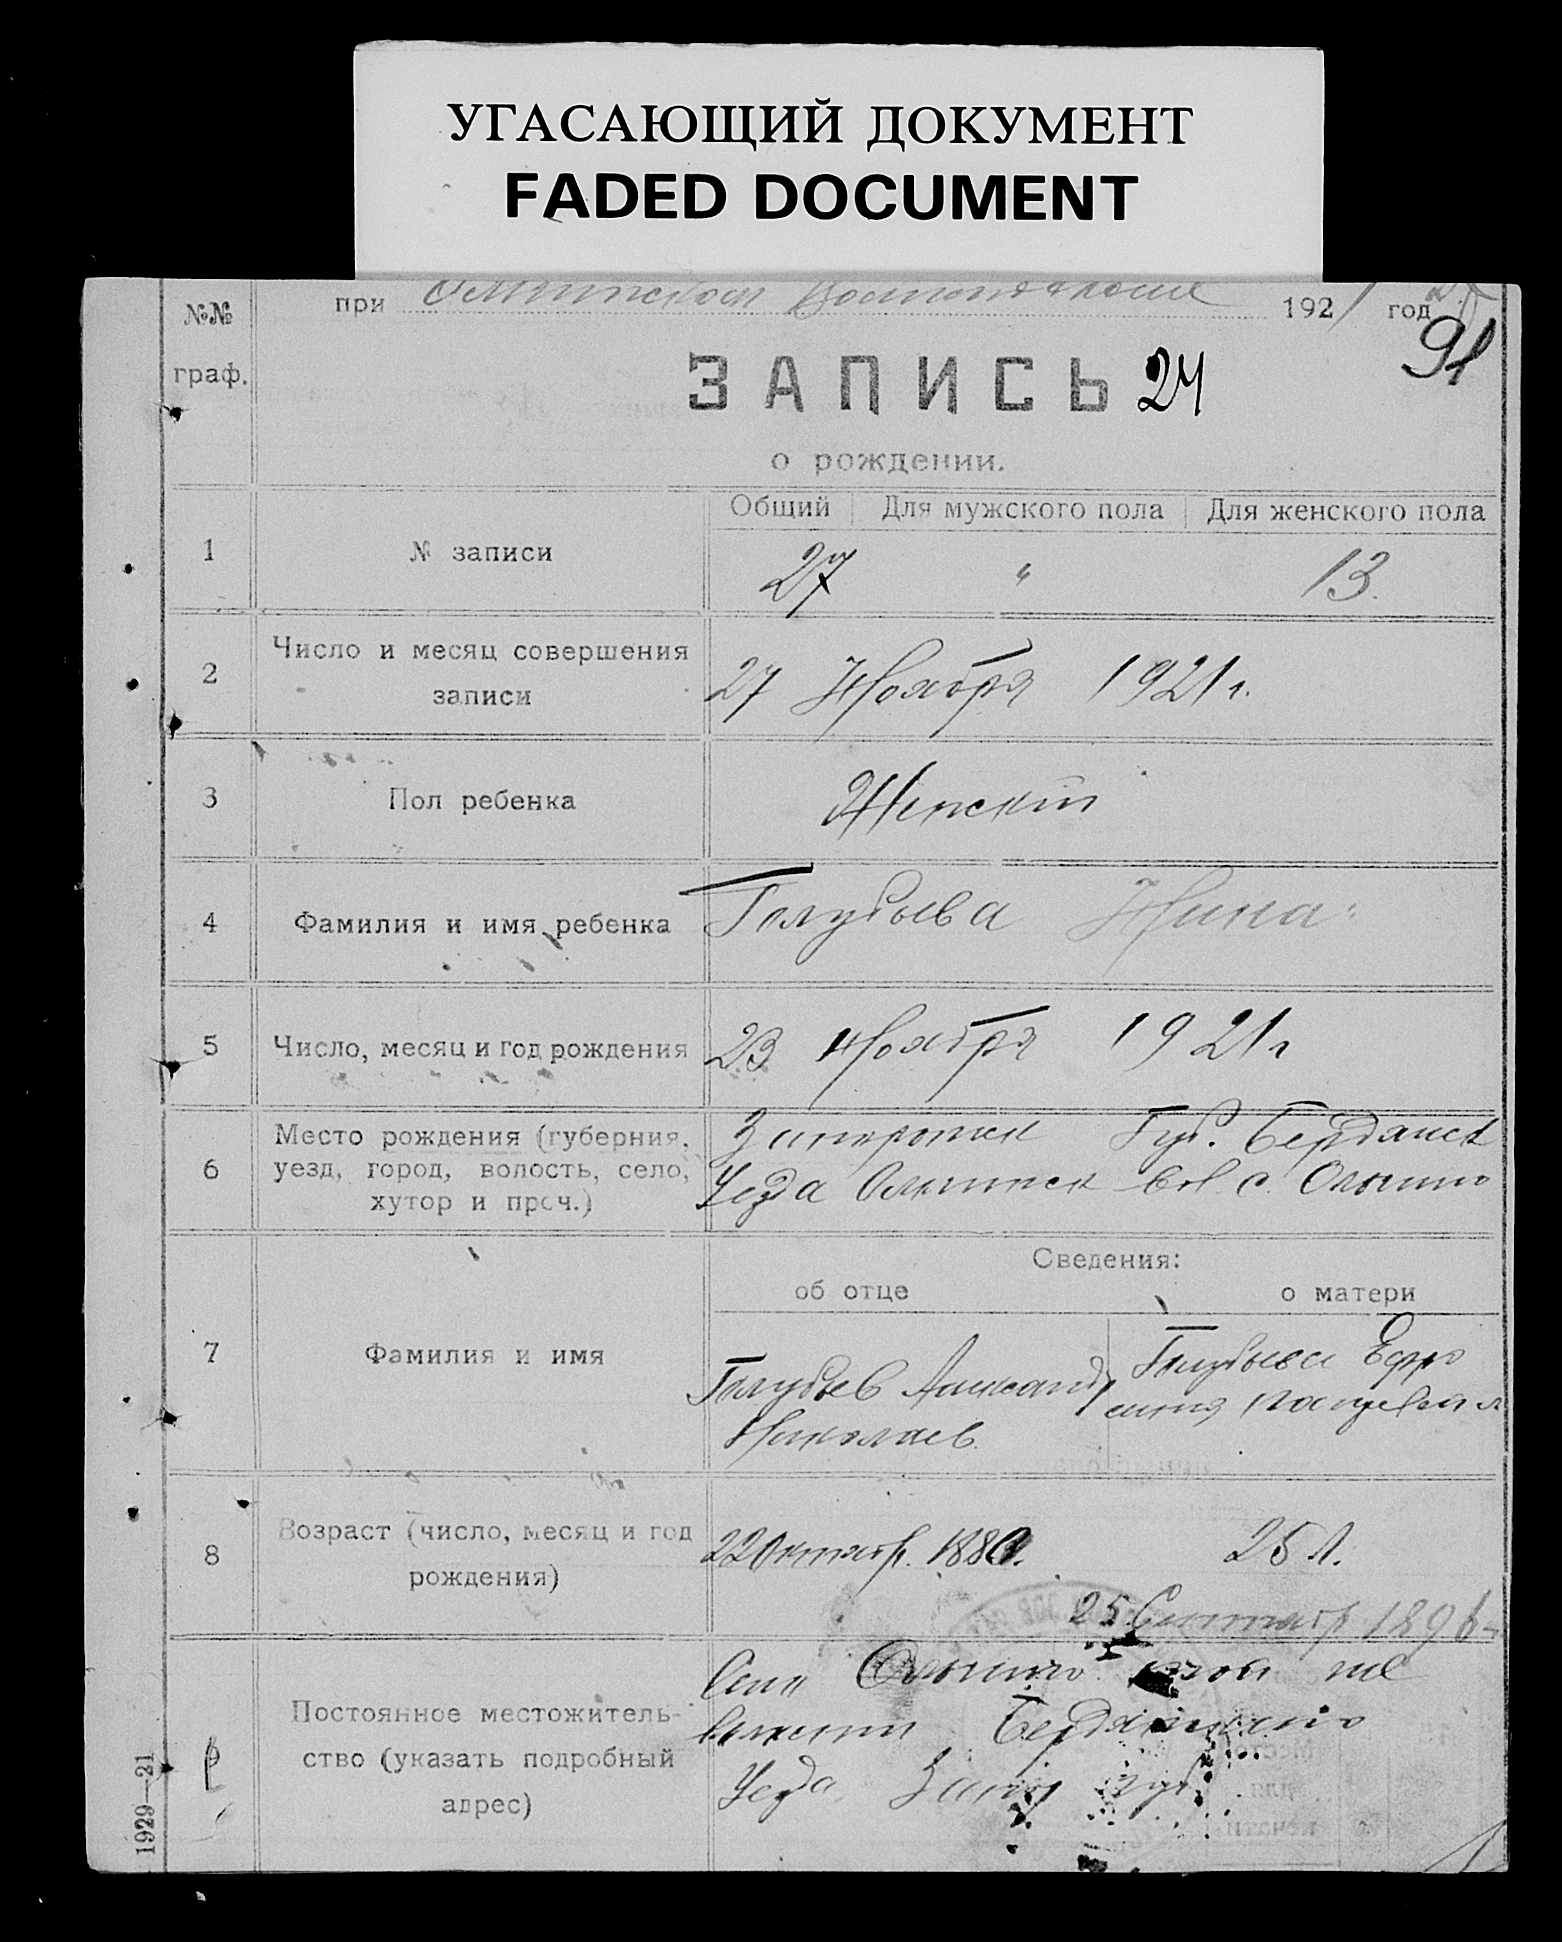 УГАСАЮЩИЙ ДОКУМЕНТ
FADED DOCUMENT
№№ граф.
при 1921 год
91
ЗАПИСЬ 24
о рождении.
Общий Для мужского пола Для женского пола
1 № записи 27 " 13.
2 Число и месяц совершения
записи
27 Ноября 1921 г.
3 Пол ребенка Женскій
4 Фамилия и имя ребенка Голубьева Нина
5 Число, месяц и год рождения 23 Ноября 1921 г
6 Место рождения (губерния,
уезд, город, волость, село,
хутор и проч.)
Губ. Бердянск
Уезда вол. с.
Сведения:
об отце о матери
7 Фамилия и имя
Голубьев Александр
Николаев.
Голубьева Ефро
синия
8 Возраст (число, месяц и год
рождения)
22 Октябр. 25 л.
25 Сентябр 1896
Постоянное местожитель-
ство (указать подробный
адрес)
Села той же
волости Бердянского
Уезда Запор губ
1929—21